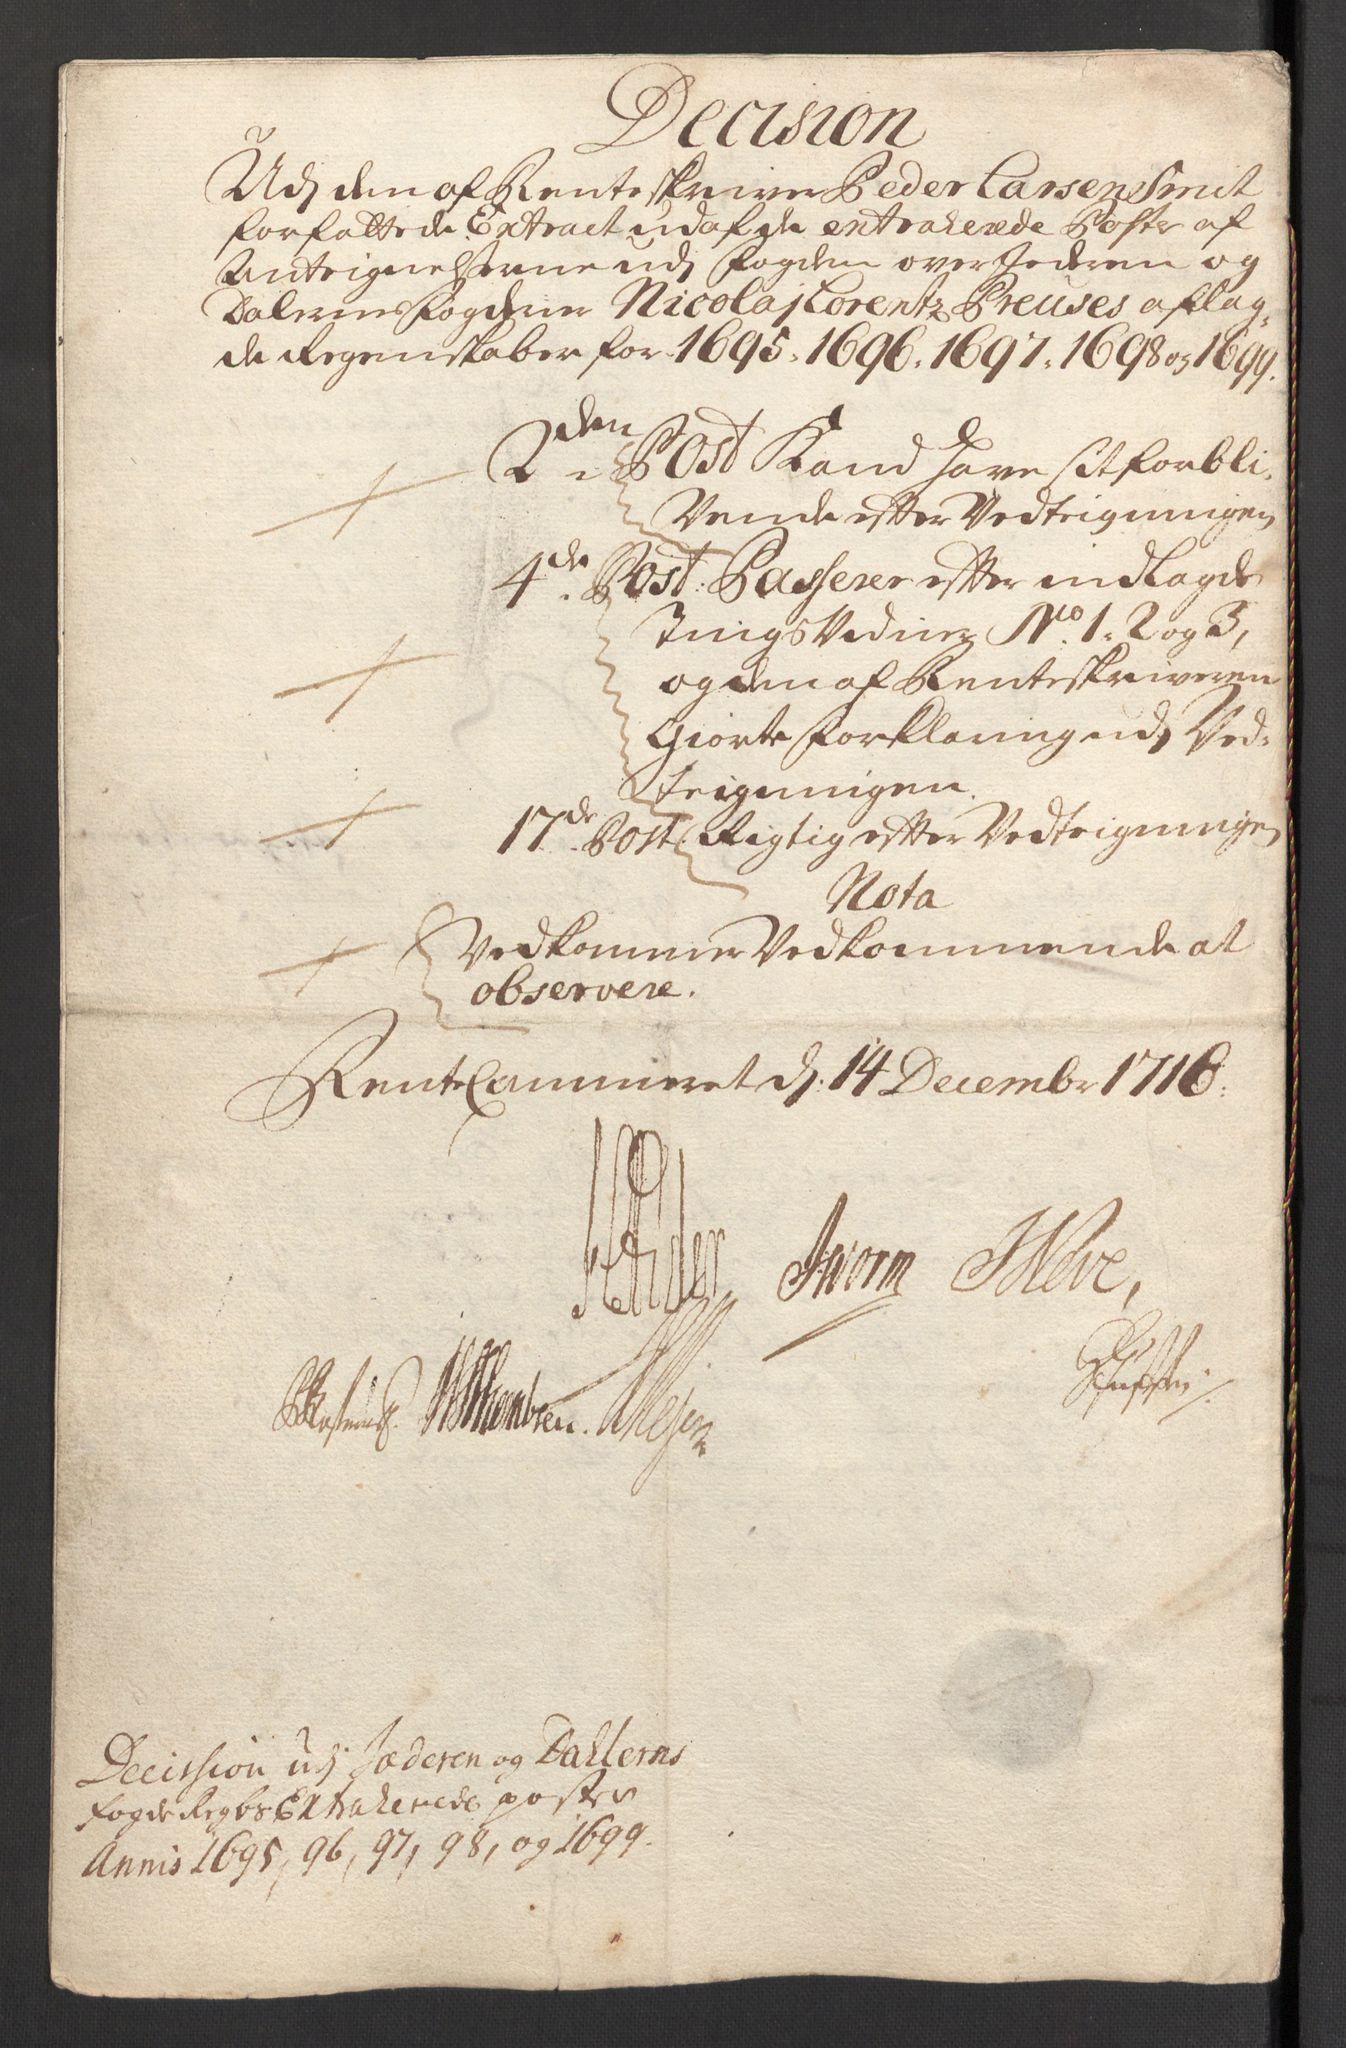 Decision
Udj den af Renteskriver Peder Larsen Smit
forfattede Extract udaf de extraherede Poster af
Anteignelserne udj fogden over Jederen og
Dalernes fogderie Nicolaj Lorentz Preuses aflag-
de Regenskaber for 1695. 1696. 1697. 1698 og 1699.
2den Post Kand have sit forbli-
vende efter Vedteigningen
4de Post: Passerer efter indlagde
Tingsvidner No. 1. 2 og 3,
og den af Renteskriveren
Giorte forklaring udj Ved-
teigningen.
17de Post: Rigtig efter Vedteigningen
Nota
Vedkommer Vedkommende at
observere.
RenteCammeret dj. 14 Decembr 1716.
JWorm
Decission udj Jæderen og Dallerns
fogde Regbs Extraherede poster
Annis 1695, 96, 97, 98, og 1699.